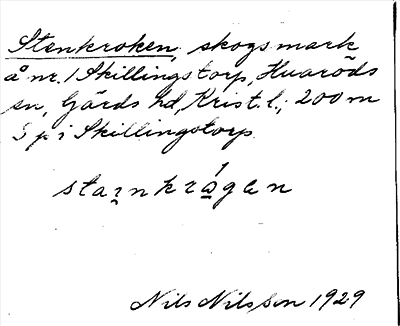 Stenkroken, skogsmark
å nr. 1 Skillingstorp, Huaröds
sn, Gärds hd, Krist. l.; 200 m
S p i Skillingstorp.
starnkrågen
Nils Nilsson 1929